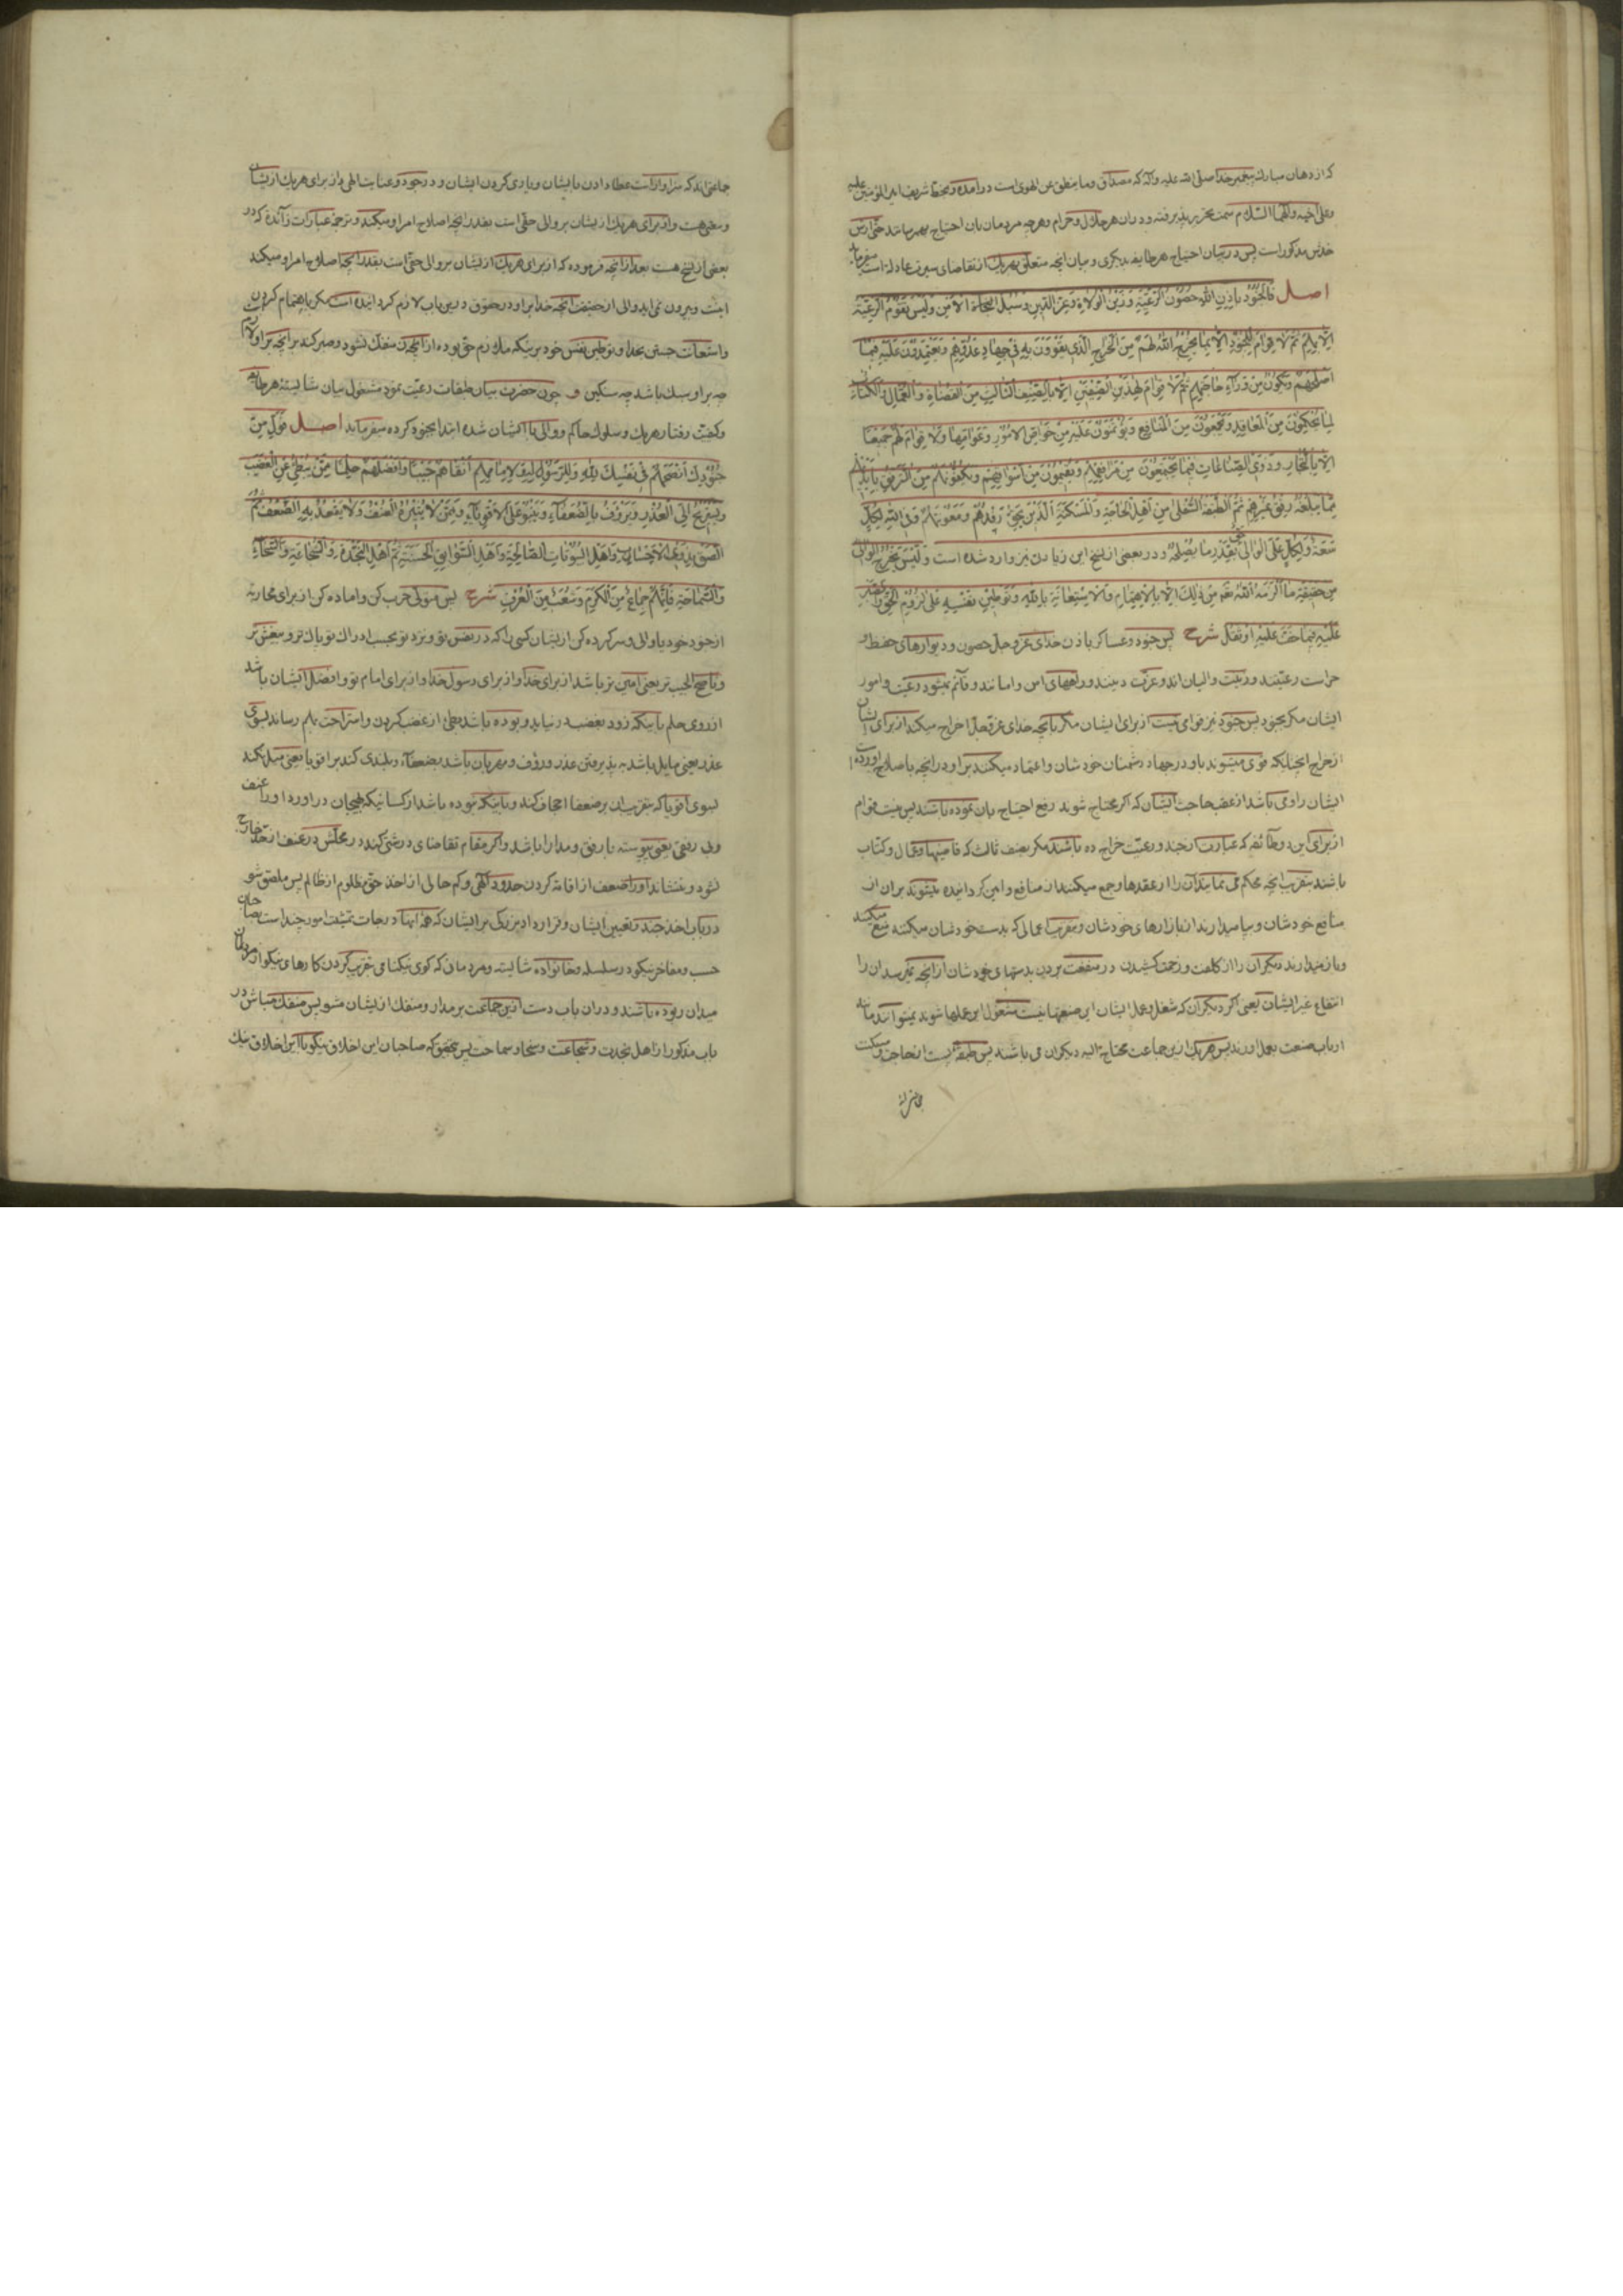 که از دهان مبارک پیغمبر خدا صلی الله علیه وآله که مصداق وما ینطق عن الهوی است درامده وبخط شریف امیر المؤمنین علیه
وعلی اخیه وآلهما السّلام سمت تحریر پذیرفته ودران هر حلال وحرام وهرچه مردمان بان احتیاج بهم رسانند حتّی ارش
خدش مذکور است پس در بیان احتیاج هر طایفه بدیگری وبیان انچه متعلّق بهریک از تقاضای سیرت عادله است میفرماید
اصل فَالْجُنُودُ بِاِذْنِ اللّهِ حُصُونُ الرَّعِيَّةِ وَزَيْنُ الْوُلاةِ وَعِزُّ الدّينِ وَسُبُلُ الْاَمْنِ وَلَيْسَ تَقُومُ الرَّعِيَّةُ
اِلّا بِهِمْ ثُمَّ لا قِوامَ لِلْجُنُودِ اِلّا بِما يُخْرِجُ اللّهُ لَهُمْ مِنَ الْخَراجِ الَّذى يَقْوَوْنَ بِهِ فى جِهادِ عَدُوِّهِمْ وَيَعْتَمِدُونَ عَلَيْهِ فيما
اَصْلَحَهُمْ وَيَكُونُ مِنْ وَراءِ حاجَتِهِمْ ثُمَّ لا قِوامَ لِهذَيْنِ الصِّنْفَيْنِ اِلّا بِالصِّنْفِ الثّالِثِ مِنَ الْقُضاةِ وَالْعُمّالِ وَالْكُتّابِ
لِما يُحْكِمُونَ مِنَ الْمَعاقِدِ وَيَجْمَعُونَ مِنَ الْمَنافِعِ وَيُؤْتَمَنُونَ عَلَيْهِ مِنْ خَواصِّ الْاُمُورِ وَعَوامِّها وَلا قِوامَ لَهُمْ جَميعًا
اِلّا بِالتُّجّارِ وَذَوِى الصِّناعاتِ فيما يَجْتَمِعُونَ مِنْ مَرافِقِهِمْ وَيُقيمُونَ مِنْ اَسْواقِهِمْ وَيَكْفُونَهُمْ مِنَ التَّرَفُّقِ بِاَيْديهِمْ
مِمّا يَبْلُغُهُ رِفْقُ غَيْرِهِمْ ثُمَّ الطَّبَقَةُ السُّفْلى مِنْ اَهْلِ الْحاجَةِ وَالْمَسْكَنَةِ الَّذينَ يَحِقُّ رِفْدُهُمْ وَمَعُونَتُهُمْ وَفِى اللّهِ لِكُلٍّ
سَعَةٌ وَلِكُلٍّ عَلَى الْوالى حَقٌّ بِقَدْرِ ما يُصْلِحُهُ ودر بعضی از نسخ این زیادتی نیز وارد شده است وَلَيْسَ يَخْرُجُ الْوالى
مِنْ حَقيقَةِ ما اَلْزَمَهُ اللّهُ مِنْ ذلِكَ اِلّا بِالْاِهْتِمامِ وَالْاِسْتِعانَةِ بِاللّهِ وَتَوْطينِ نَفْسِهِ عَلى لُزُومِ الْحَقِّ وَالصَّبْرِ
عَلَيْهِ فيما خَفَّ عَلَيْهِ اَوْ ثَقُلَ شرح پس جنود وعساکر باذن خدای عزّ وجل حصون ودیوارهای حفظ و
حراست رعیّتند وزینت والیان اند وعزّت دینند وراههای امن وامانند وقائم نمیشود رعیّت وامور
ایشان مگر بجنود پس جنود نیز قوامی نیست از برای ایشان مگر بانچه خدای عزّ وجلّ اخراج میکند از برای ایشان
از خراج انچنانیکه قوی میشوند باو در جهاد دشمنان خودشان واعتماد میکنند براو در انچه باصلاح اورده
ایشان را ومی باشد از عقب حاجت ایشان که اگر محتاج شوند رفع احتیاج بان نموده باشند پس نیست قوام
از برای این دو طائفه که عبارت از جند ورعیّت خراج ده باشند مگر بصنف ثالث که قاضیها وعمّال وکتّاب
باشند بتقریب انچه محکم می نمایند آن را از عقدها وجمع میکنند از منافع وامین گردانیده میشوند بران از
منافع خودشان وبپا میدارند از بازارهای خودشان وبتقریب اعمالی که بدست خودشان میکنند منع میکنند
وباز میدارند دیگران را از کلفت وزحمت کشیدن در منفعت بردن بدستهای خودشان از انچه نمیرسد ان را
انتفاع غیر ایشان یعنی اگر دیگران که شغل وعمل ایشان این صنعتها نیست مشغول این عملها شوند نمیتوانند مانند
ارباب صنعت بعمل اورند پس هر یک ازین جماعت محتاج الیه دیگران می باشند پس طبقه پست از حاجت ومسکنت
جماعتی اند که سزاوار است عطا دادن بایشان ویاری کردن ایشان ودر جود وعنایت الهی از برای هریک از ایشان
وسعتی هست واز برای هریک از ایشان بر والی حقّی است بقدر انچه اصلاح امر او میکند وترجمه عبارات زآئده که در
بعضی از نسخ هست بعد از انچه فرموده که از برای هریک از ایشان بر والی حقّی است بقدر انچه اصلاح امر او میکند
اینست وبیرون نمی اید والی از حقیقت انچه خدا براو در حقوق درین باب لازم گردانیده است مگر باهتمام کردن
واستعانت جستن بخدا وتوطین نفس خود براینکه ملازم حق بوده از انچه ان منفک نشود وصبر کند بر انچه براو لازم است
چه براو سبک باشد چه سنگین و چون حضرت بیان طبقات رعیّت نمود مشغول بیان شایسته هر طایفه
وکیفیّت رفتار هریک وسلوک حاکم ووالی با ایشان شده ابتدا بجنود کرده میفرماید اصل فَوَلِّ مِنْ
جُنُودِكَ اَنْصَحَهُمْ فى نَفْسِكَ لِلّهِ وَلِلرَّسُولِ وَلِاِمامِهِمْ اَنْقاهُمْ جَيْبًا وَاَفْضَلَهُمْ حِلْمًا مِمَّنْ يُبْطِئُ عَنِ الْغَضَبِ
وَيَسْتَريحُ اِلَى الْعُذْرِ وَيَرْؤُفُ بِالضُّعَفآءِ وَيَنْبُو عَلَى الْاَقْوِيآءِ وَمِمَّنْ لا يُثيرُهُ الْعُنْفُ وَلا يَقْعُدُ بِهِ الضَّعْفُ ثُمَّ
الْصَقْ بِذَوِى الْاَحْسابِ وَاَهْلِ الْبُيُوتاتِ الصّالِحَةِ وَاَهْلِ السَّوابِقِ الْحَسَنَةِ ثُمَّ اَهْلِ النَّجْدَةِ وَالشَّجاعَةِ وَالسَّخآءِ
وَالسَّماحَةِ فَاِنَّهُمْ جِماعٌ مِنَ الْكَرَمِ وَشُعَبٌ مِنَ الْعُرْفِ شرح پس متولّی حرب کن واماده کن از برای محاربه
از جنود خود یا والی وسرکرده کن از ایشان کسی را که در نفس تو ونزد تو بحسب ادراک تو پاک تر وبیغش تر
وناصح الجیب تر یعنی امین تر باشد از برای خدا واز برای رسول خدا واز برای امام تو وافضل ایشان باشد
از روی حلم باینکه زود بغضب در نیاید وبوده باشد بطئ از غضب کردن واستراحت بهم رساند بسوی
عذر یعنی مایل باشد به پذیرفتن عذر ورؤف ومهربان باشد بضعفآء وبلندی کند بر اقویا یعنی میل نکند
بسوی اقویا که بتقریب ان بر ضعفا اجحاف کند وباینکه بوده باشد از کسانیکه بهیجان در اورد اورا عنف
وبی رفقی یعنی پیوسته با رفق ومدارا باشد واگر مقام تقاضای درشتی کند در محلّش در عنف از حدّ خارج
نشود وننشاند اورا ضعف از اقامه کردن حدود الهی وکم حالی از اخذ حق مظلوم از ظالم پس ملصق شو
در باب اخذ جند وتعیین ایشان وقرارداد بزرگی بر ایشان که همه اینها درجات تمشیت امور جند است بصاحبان
حسب ومفاخر نیکو ودر سلسله وخانواده شایسته ومردمانی که کوی نیکنامی بتقریب کردن کارهای نیکو از مردان
میدان ربوده باشند ودران باب دست ازین جماعت بر مدار ومنفک از ایشان مشو پس منفک مباش در
باب مذکور از اهل نجدت وشجاعت وسخا وسماحت پس بتحقیق که صاحبان این اخلاق نیکو با این اخلاق نیک